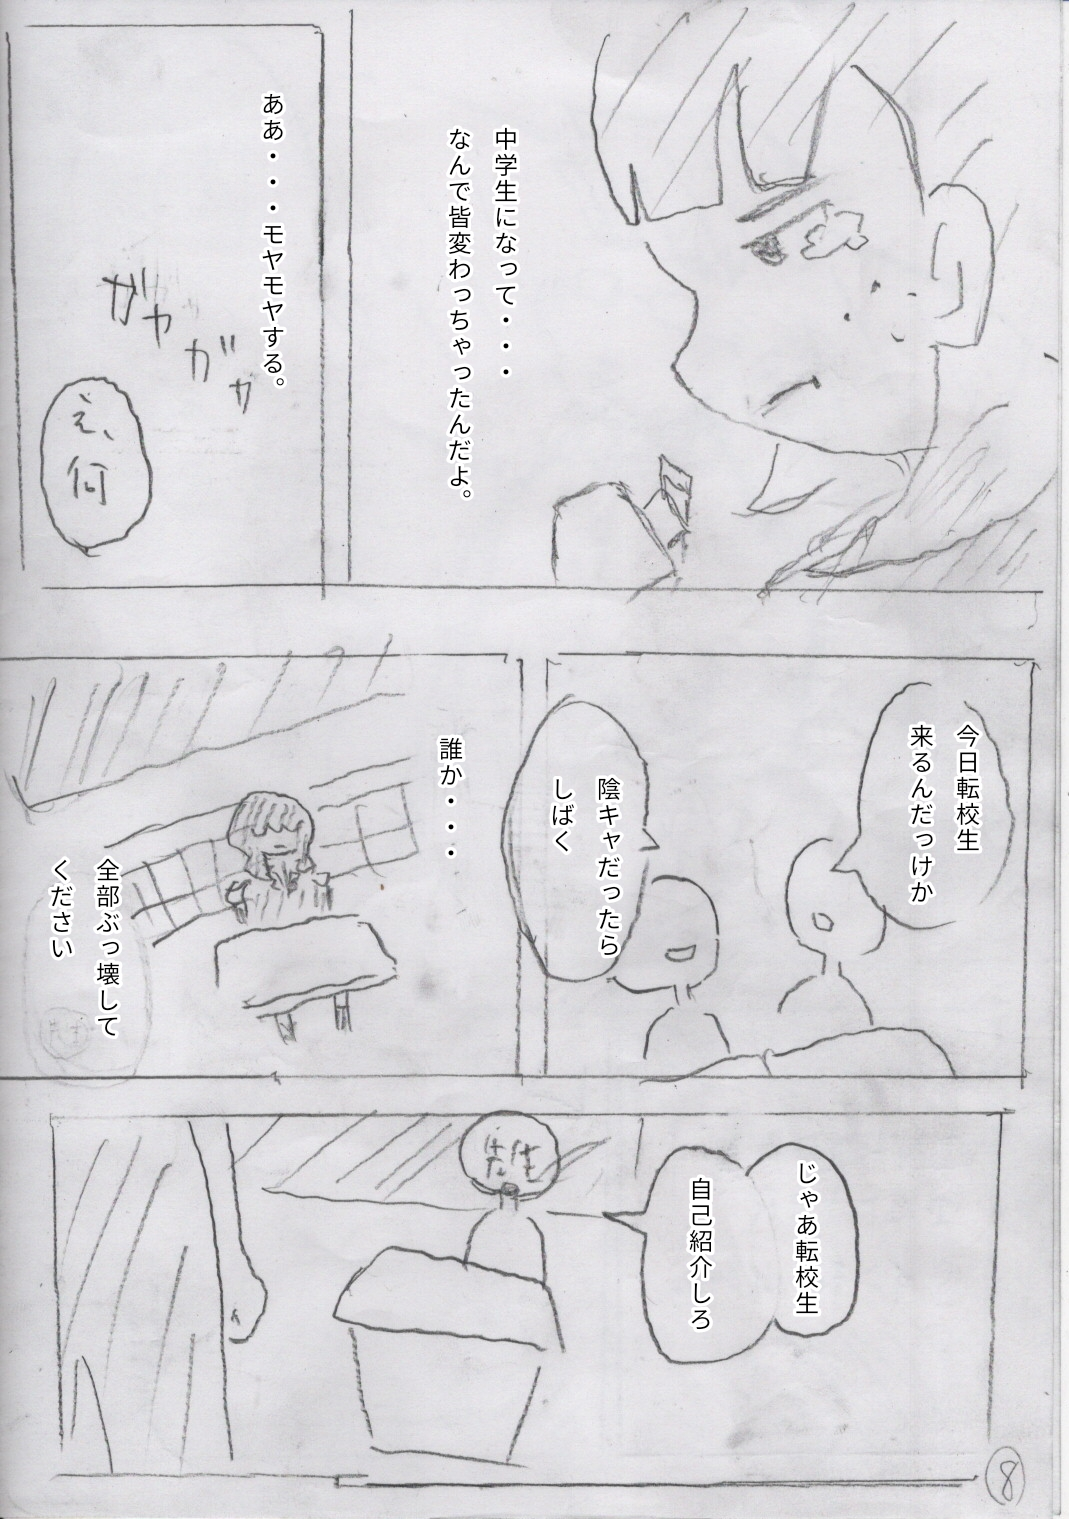 中学生になって・・・
なんで皆変わっちゃったんだよ。
ああ・・・モヤモヤする。
ガヤガヤ
え、
何
今日転校生
来るんだっけか
陰キャだったら
しばく
誰か・・・
全部ぶっ壊して
ください
じゃあ転校生
自己紹介しろ
先生
8